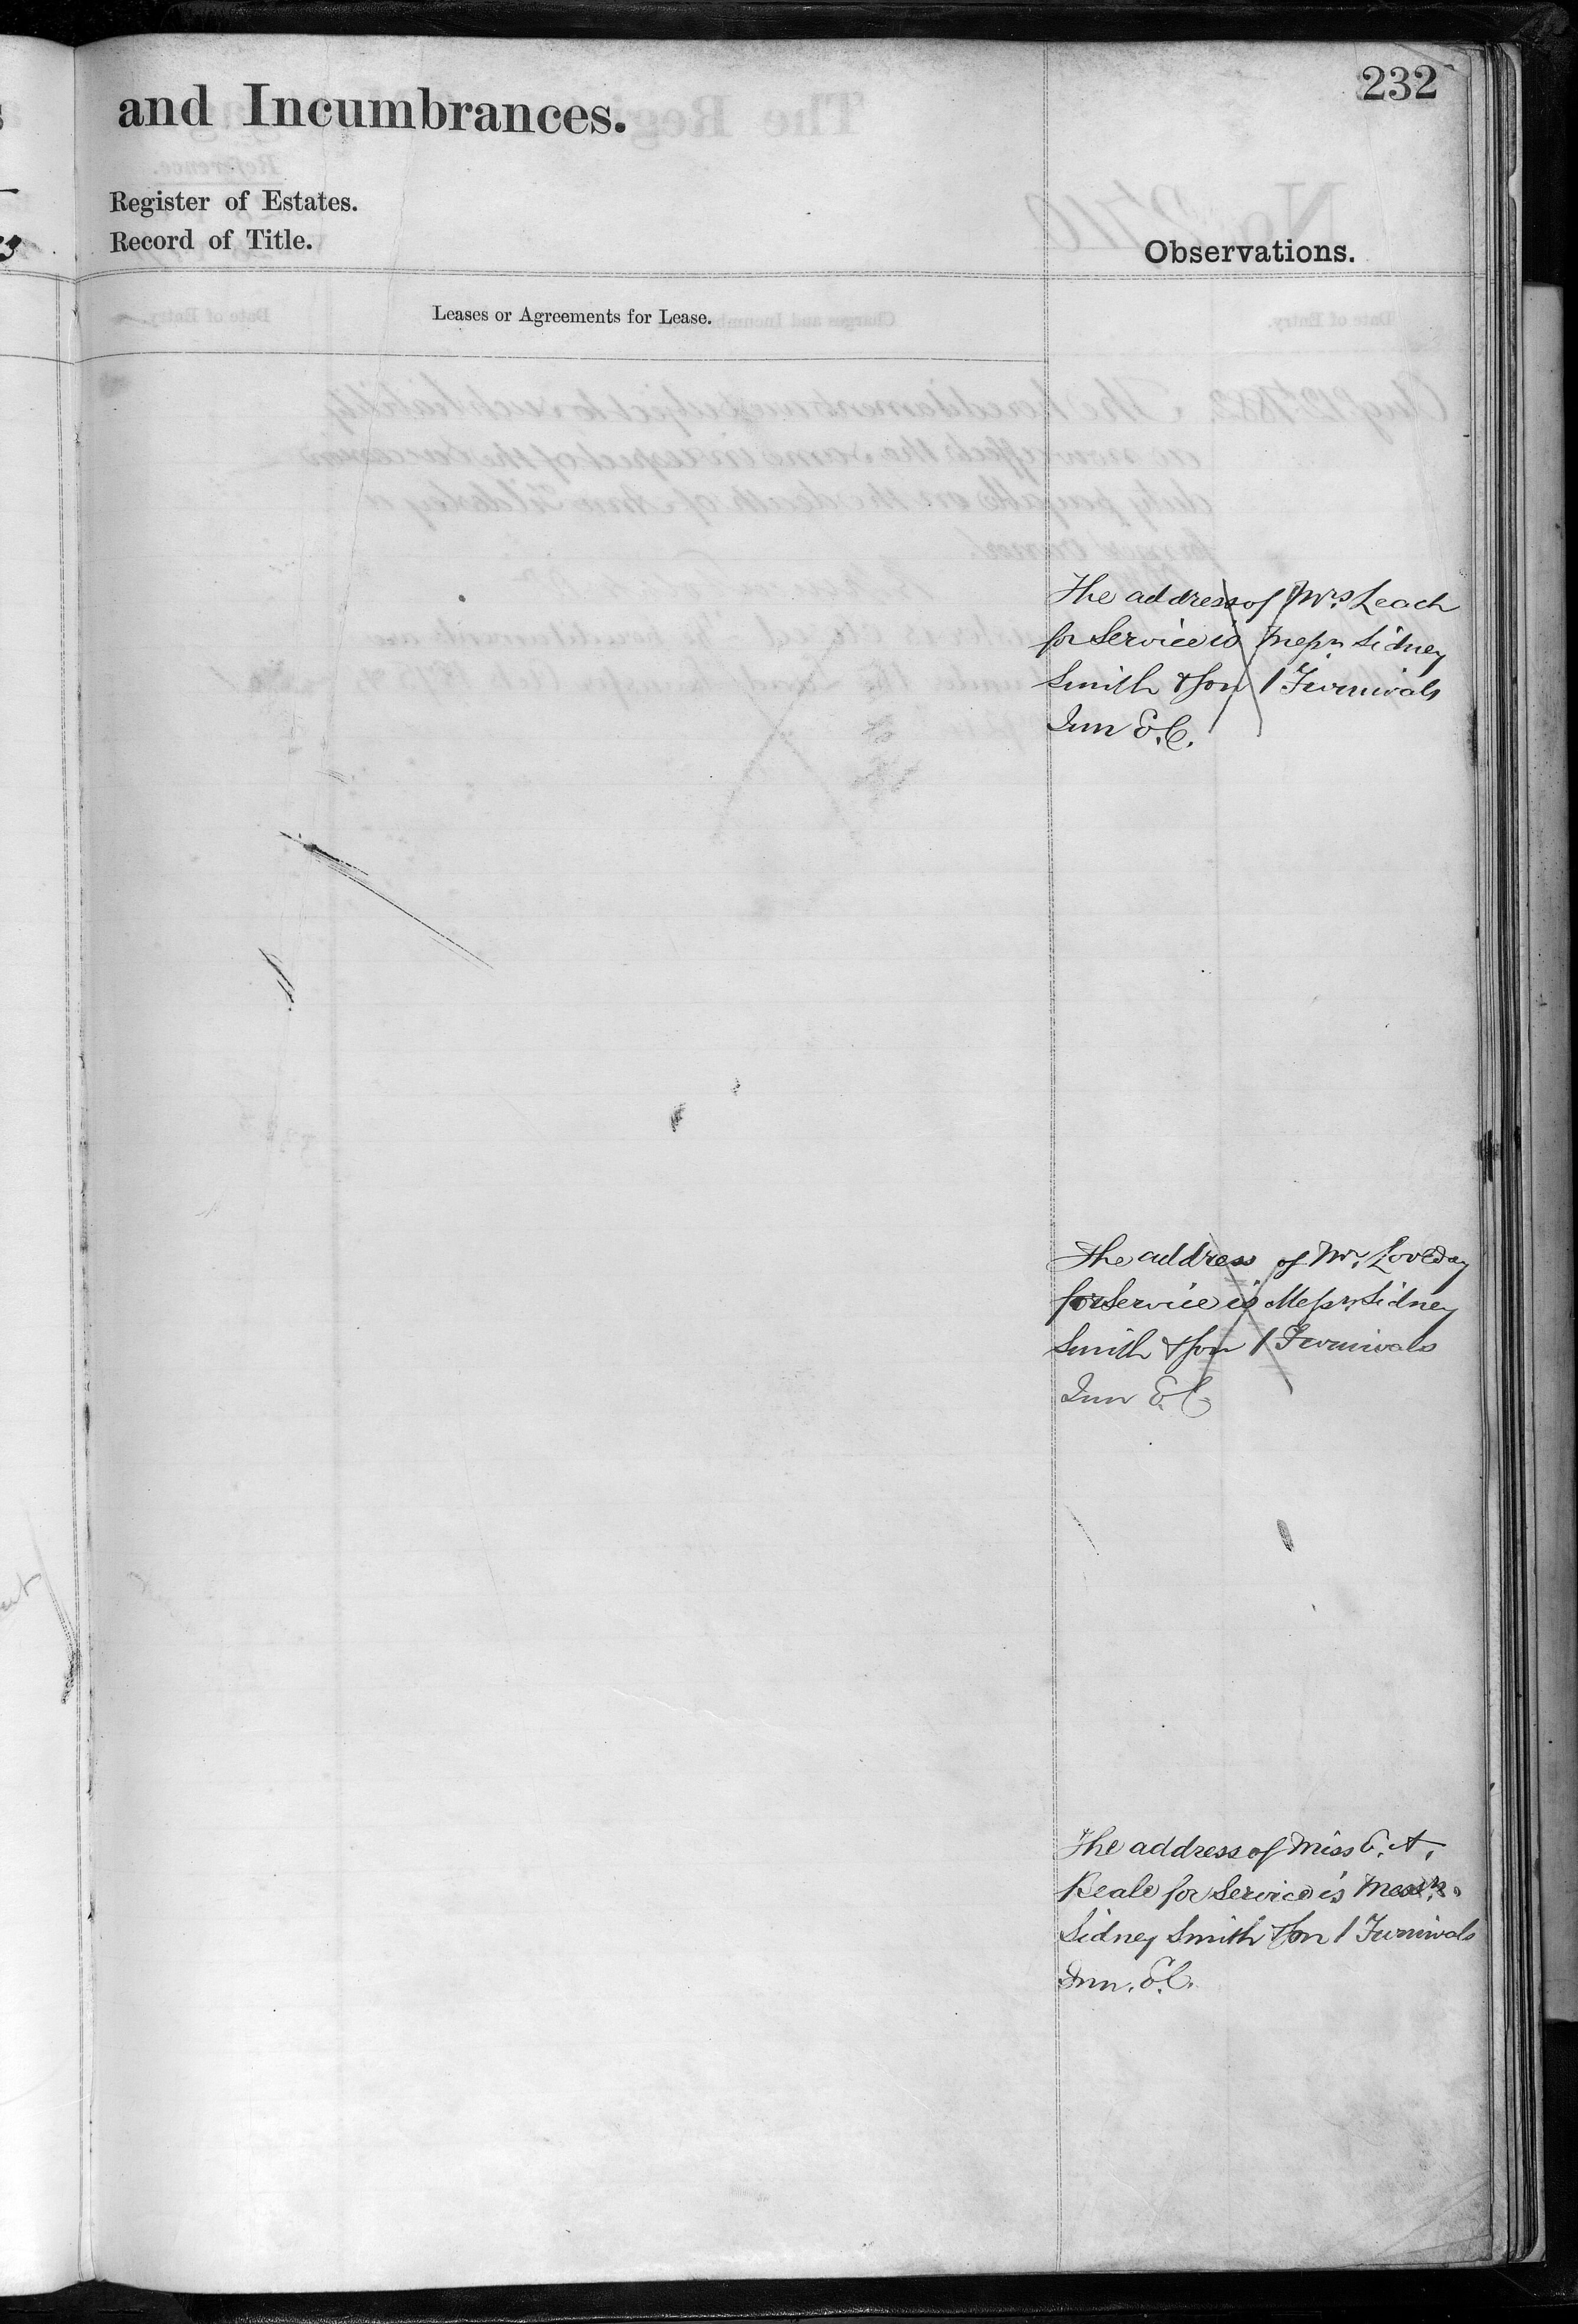 232
and Incumbrances.
Register of Estates.
Record of Title.
Observations.
Leases or Agreements for Lease.
The address of Mrs. Leach
for Service is Messrs Sidney
Smith & Son 1 Furnivals
Inn E.C.
The address of Mr. Loveday
for Service is Messrs. Sidney
Smith & Son 1 Furnivals
Inn E.C.
The address of Miss E. A.
Beale for Service is Messrs.
Sidney Smith & Son 1 Furnivals
Inn. E.C.